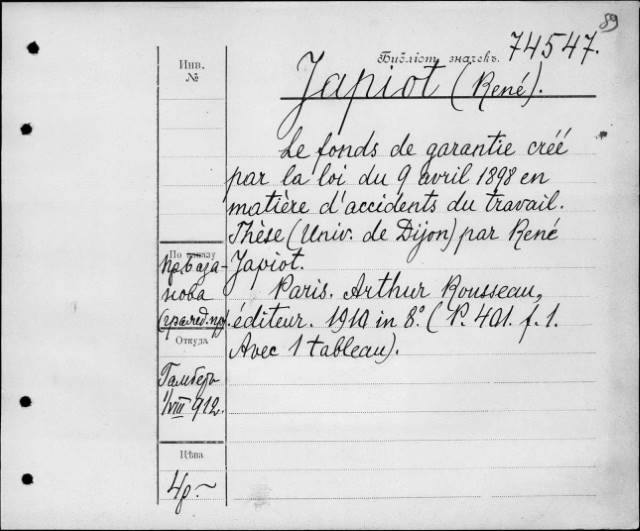 89
Инв.
№
Библіот. значекъ.
74547.
Japiot (René).
Le fonds de garantie créé
par la loi du 9 avril 1898 en
matière d'accidents du travail.
Thèse (Univ. de Dijon) par René
Japiot.
Paris. Arthur Rousseau,
éditeur. 1910 in 8º. (P. 401. f. 1.
Avec 1 tableau).
По заказу
нова
Откуда
Гамберъ
1/VIII 912.
Цѣна
4р.~